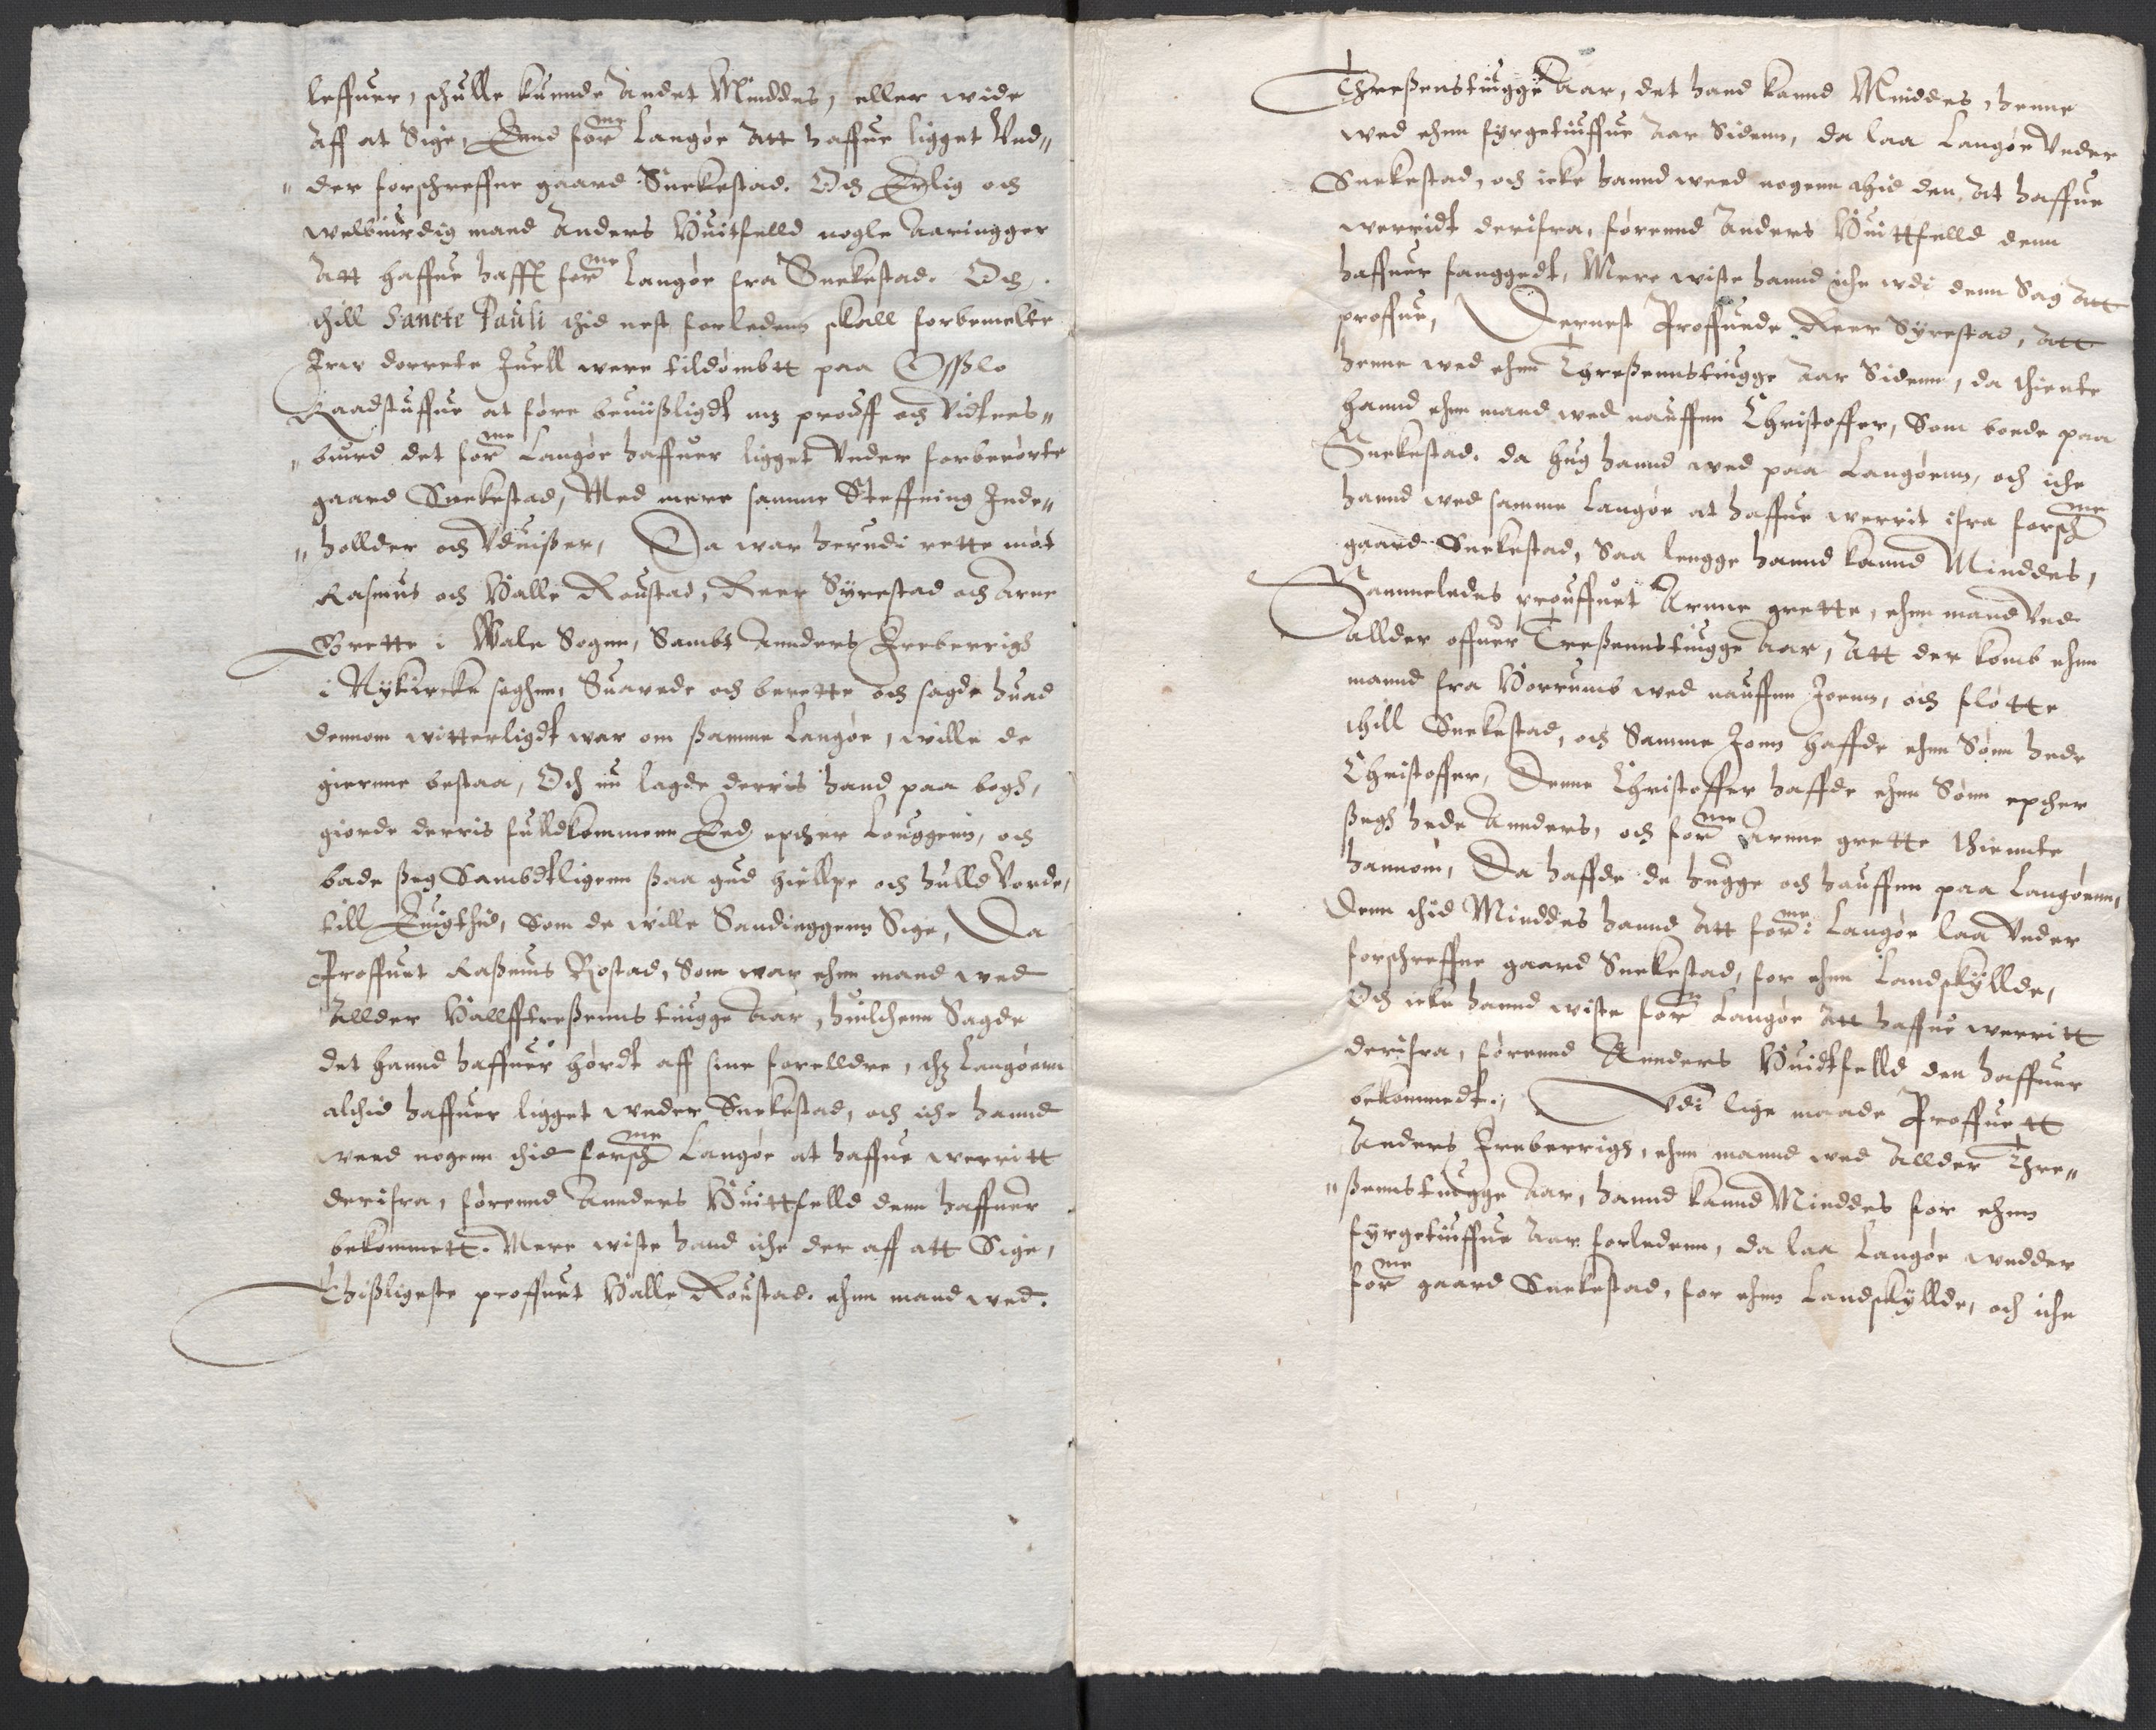 leffuer, schulle kunde Andet Minddes, eller wide
Aff at Sige, End forne Langøe Att haffue ligget Und„
„der forschreffne gaard Snekestad. Och Erlig och
welbiurdig mand Anders Huitfelld nogle Aaringger
Att haffue hafft forne Langøe fra Snekestad. Och
thill Sancte Pauli thid nest forledenn skall forbemelte
Frw dorrete Juell were tildømbtt paa Opsslo
Raadstuffue at føre beuiisligdt mz prouff och Vidtnes„
„buird det forne Langøe haffuer ligget Under forberørte
gaard Snekestad, Med mere samme Steffning Inde„
„hollder och Vduisser, Da war herudi rette møt
Rasmus och Halle Roustad, Reer Syrestad och Arne
Grette i Wale Sogen, Sambt Annders Freberrigh
i Nykircke soghen, Suarede och berette och sagde huad
dennom witterligdt war om ssamme Langøe, wille de
gierne bestaa, Och nu lagde derris hand paa bogh,
giorde derris fulldkommene Eed epther Louggenn, och
bade sseg Sambdtligenn ssaa gud hiellpe och hulld Vorde,
till Euigthid, som de wille Sandinggenn Sige, Da
Proffuet Rassmus Rostad, Som war ehnn mand wed
Allder Hallfftressennstiugge Aar, huilchenn Sagde
det hannd haffuer hørdt aff sine forelldre, thz Langøenn
altid haffuer ligget under Snekestad, och iche hannd
weed nogenn thid forschne Langøe at haffue werritt
derifra, førennd Annders Huittfelld denn haffuer
bekommett. Mere wiste hand iche der aff att Sige,
Thissligeste proffuet Halle Roustad. ehnn mand wed.
Thressenstiugge Aar, det hand kannd Minddes, henne
wed ehnn fyrgetiuffue Aar Sidenn, da laa Langøe Under
Snekestad, och icke hannd weed nogenn thid den At haffue
werridt derifra, førennd Anders Huittfelld denn
haffuer fanggedt, Mere wiste hannd iche wdi denn Sag Att
proffue, Dernest Proffuede Reer Syrestad, Att
henne wed ehnn Thressennstiugge Aar Sidenn, da thiente
hannd ehnn mand wed nauffnn Christoffer, Som boede paa
Snekestad, da hug hannd wed paa Langøenn, och iche
hannd wed samme Langøe at haffue werrit ifra forschne
gaard Snekestad, Saa lengge hannd kannd Minddes,
Sammeledes prouffuet Arnne grette, ehnn mand Ved
Allder offuer Tressennstiugge Aar, Att der komb ehnn
mannd fra Horrumb wed nauffnn Joenn, och fløtte
thill Snekestad, och Samme Jonn haffde ehnn Sønn hede
Christoffer, Denne Christoffer haffde ehnn Sønn epther
ssegh hede Annders, och forne Arnne grette thiennte
hannom, Da haffde de hugge och hauffnn paa Langøenn,
denn thid Minddes hannd Att forne Langøe laa Under
forschreffne gaard Snekestad, for ehnn Landskyllde,
Och icke hannd wiste forn Langøe Att haffue werritt
derifra, førennd Annders Huidtfelld den haffuer
bekommedt., Vdi lige maade Proffuett
Anders Freberrigh, ehnn mannd wed Allder Thre„
„ssennstiugge Aar, hannd kannd Minddes for ehnn
fyrgetiuffue Aar forledenn, da laa Langøe wnder
forne gaard Snekestad, for ehnn Landskyllde, och iche